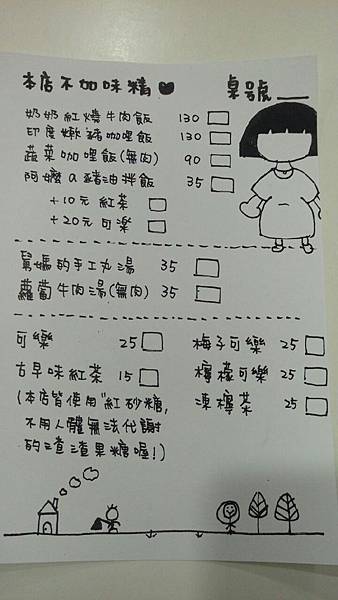 本店不加味精♥ 桌號___
奶奶紅燒牛肉飯 130 □
印度嫩豬咖哩飯 130 □
蔬菜咖哩飯(無肉) 90 □
阿嬤a豬油拌飯 35 □
+10元 紅茶 □
+20元 可樂 □
舅媽的手工丸湯 35 □
蘿蔔牛肉湯(無肉) 35 □
可樂 25 □
古早味紅茶 15 □
(本店皆使用"紅砂糖,
不用人體無法代謝
的渣渣果糖喔!)
梅子可樂 25 □
檸檬可樂 25 □
凍檸茶 25 □